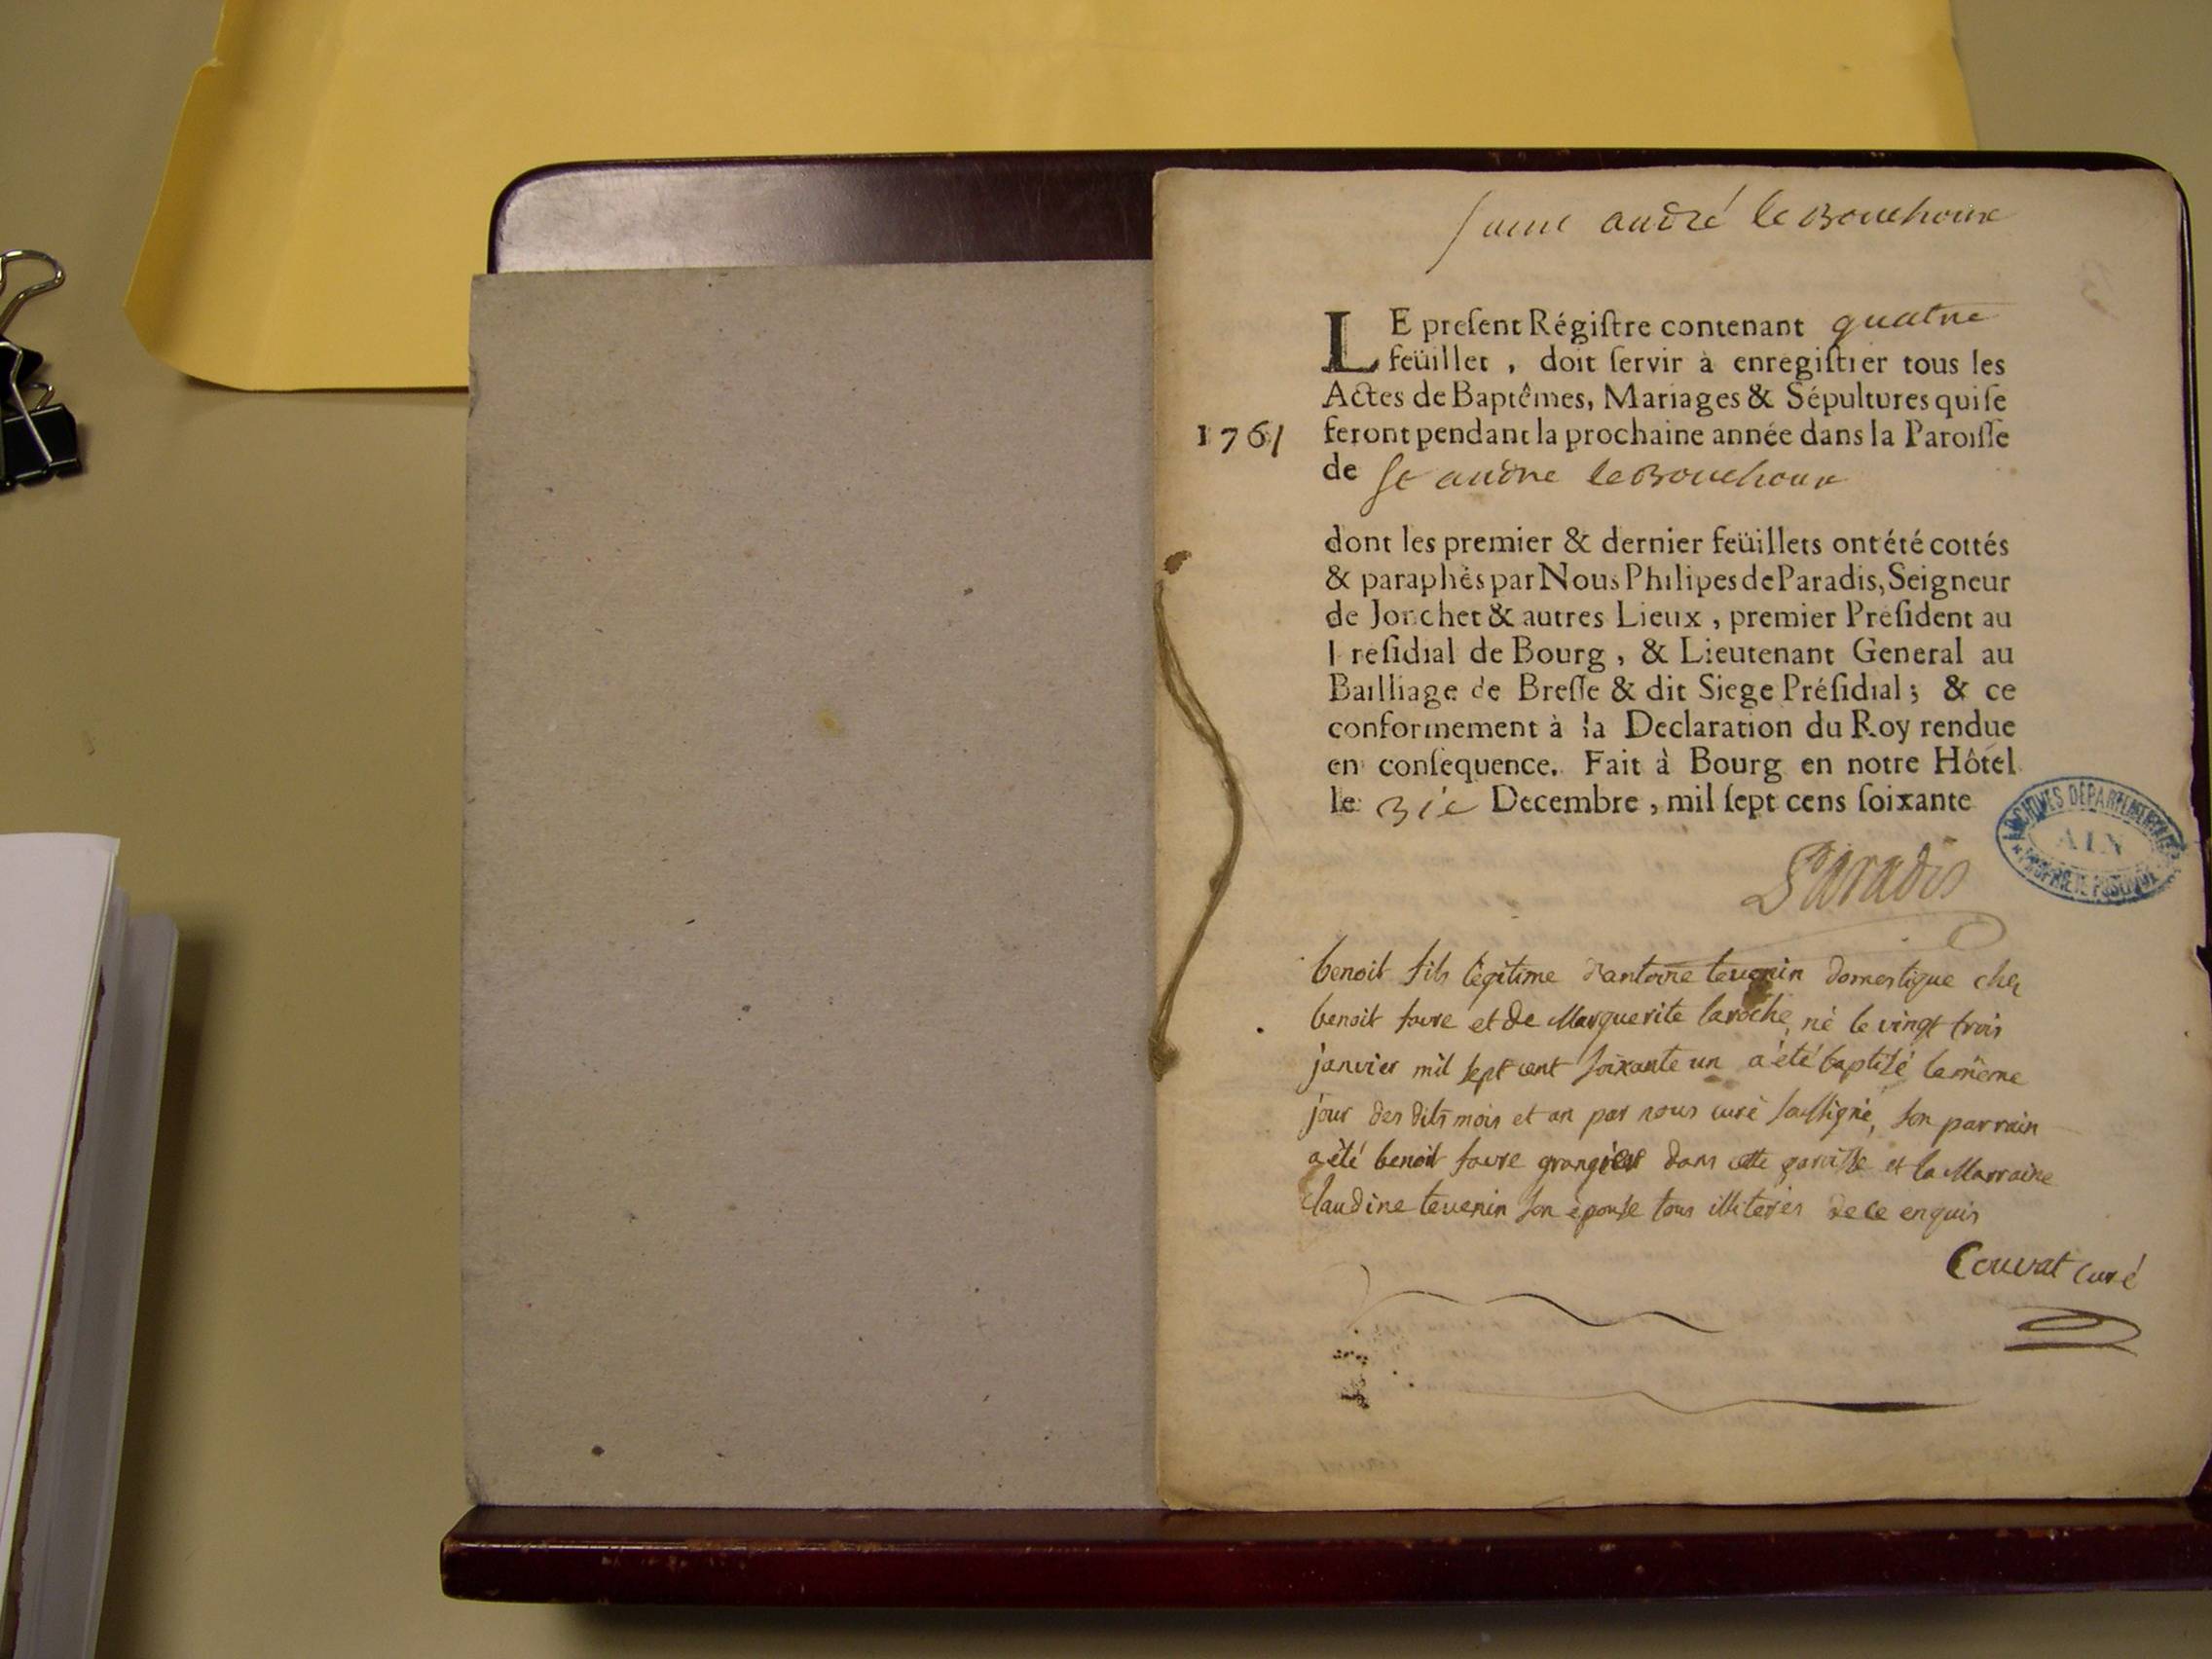 Saint andré le Bouchoux
LE preſent Régiſtre contenant quatre
feüillet , doit ſervir à enregiſtrer tous les
Actes de Baptêmes, Mariages & Sépultures qui ſe
1761 feront pendant la prochaine année dans la Paroiſſe
de St andre le Bouchoux
dont les premier & dernier feüillets ont été cottés
& paraphés par Nous Philipes de Paradis, Seigneur
de Jonchet & autres Lieux , premier Préſident au
Preſidial de Bourg , & Lieutenant General au
Bailliage de Breſſe & dit Siege Préſidial ; & ce
conformement à la Declaration du Roy rendue
en conſequence. Fait à Bourg en notre Hôtel
le 31e Decembre , mil ſept cens ſoixante
ARCHIVES DÉPARTEMENTALES
AIN
PROPRIÉTÉ PUBLIQUE
Paradis
benoit fils légitime d'antoine tevenin domestique chez
benoit favre et de Marguerite laroche, né le vingt trois
janvier mil sept cent soixante un a été baptisé le même
jour des dits mois et an par nous curé soussigné, son parrain
a été benoit favre granger dans cette paroisse et la Marraine
Claudine tevenin son épouse tous illiterés de ce enquis
Couvat curé